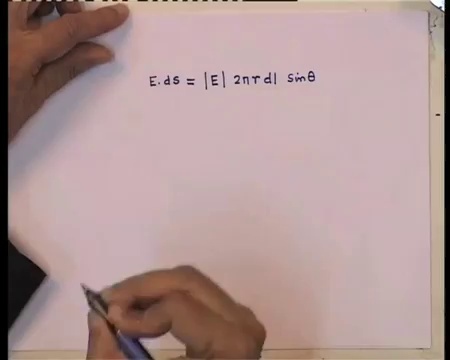 E. ds = |E| 2πr dl sinθ